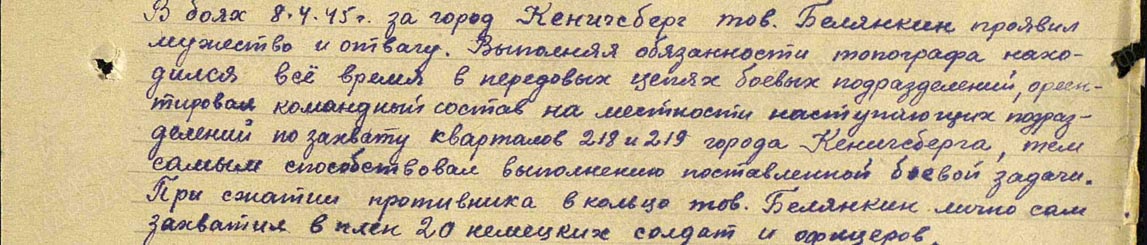 В боях 8.4.45г. за город Кенигсберг тов. Белянкин проявил
мужество и отвагу. Выполняя обязанности топографа нахо-
дился всё время в передовых цепях боевых подразделений, ориен-
тировал командный состав на местности наступающих подраз-
делений по захвату кварталов 218 и 219 города Кенигсберга, тем
самым способствовал выполнению поставленной боевой задачи.
При сжатии противника в кольцо тов. Белянкин лично сам
захватил в плен 20 немецких солдат и офицеров.